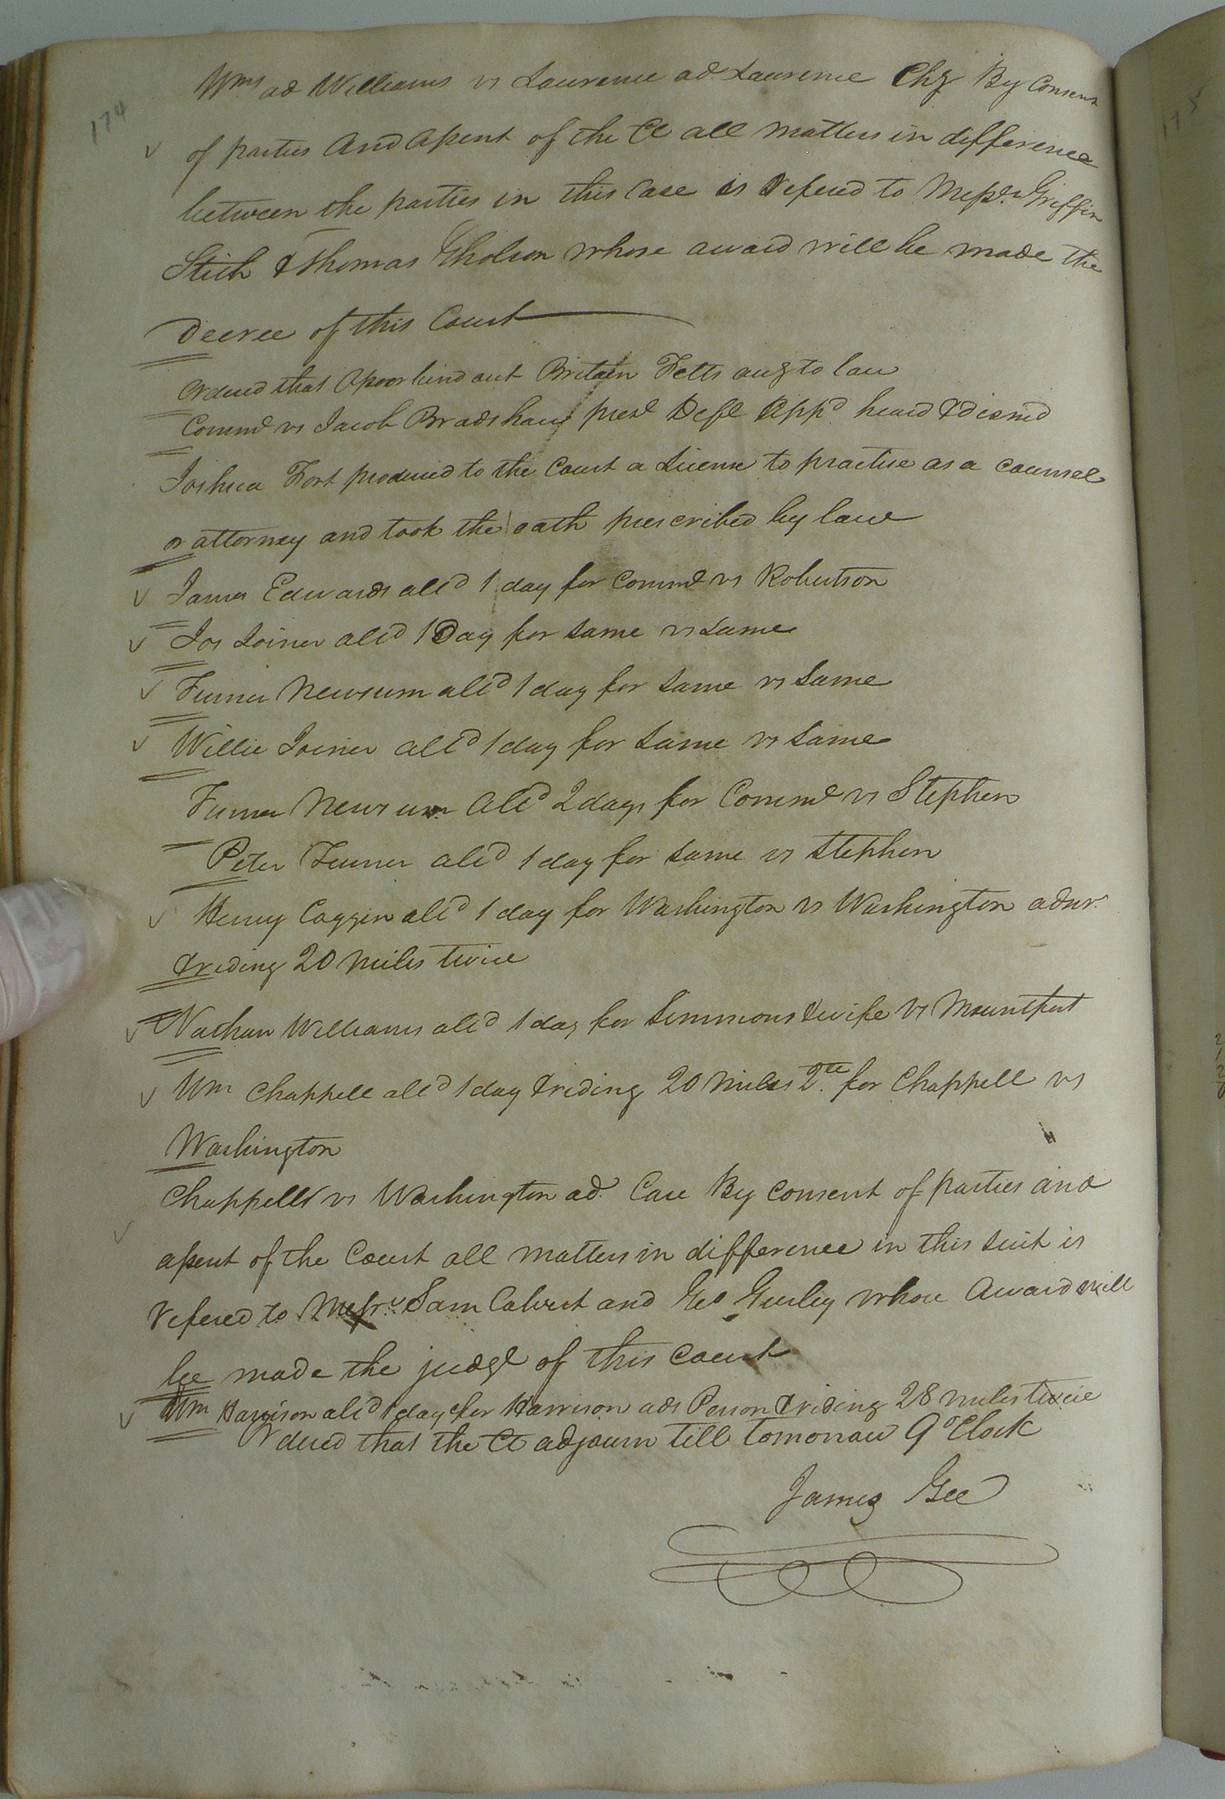 174
Wms ad Williams vs Laurence ad Laurence Chy By Consent
of parties And Assent of the Ct all matters in difference
between the parties in this Case is refered to Messrs Griffin
Stith & Thomas Gholson whose award will be made the
Decree of this Court
Ordered that Opoor bind out Britain Fetts acg to law
Commd vs Jacob Bradshaw presd Deft Appd heard & dismd
Joshua Fort produced to the Court a License to practise as a counsel
or attorney and took the oath prescribed by law
James Edwards alld 1 day for Commd vs Robertson
Jos Joiner alld 1 Day for same vs Same
Turner Newsum alld 1 day for Same vs Same
Willie Joiner alld 1 day for Same vs Same
Turner Newsum alld 2 days for Commd vs Stephen
Peter Turner alld 1 day for Same vs Stephen
Henry Coggin alld 1 day for Washington vs Washington admr
& riding 20 Miles twice
Nathan Williams alld 1 day for Simmons & wife vs Mountfort
Wm Chappell alld 1 day & riding 20 Miles 2ce for Chappell vs
Washington
Chappells vs Washington ad. Case By Consent of parties and
assent of the Court all matters in difference in this suit is
refered to Messrs Sam Calvert and Geo Gurley whose Award will
be made the judgt of this Court
Wm Harrison alld 1 day for Harrison ads Person & riding 28 miles twice
Ordered that the Ct adjourn till tomorrow 9 oClock
James Gee
175